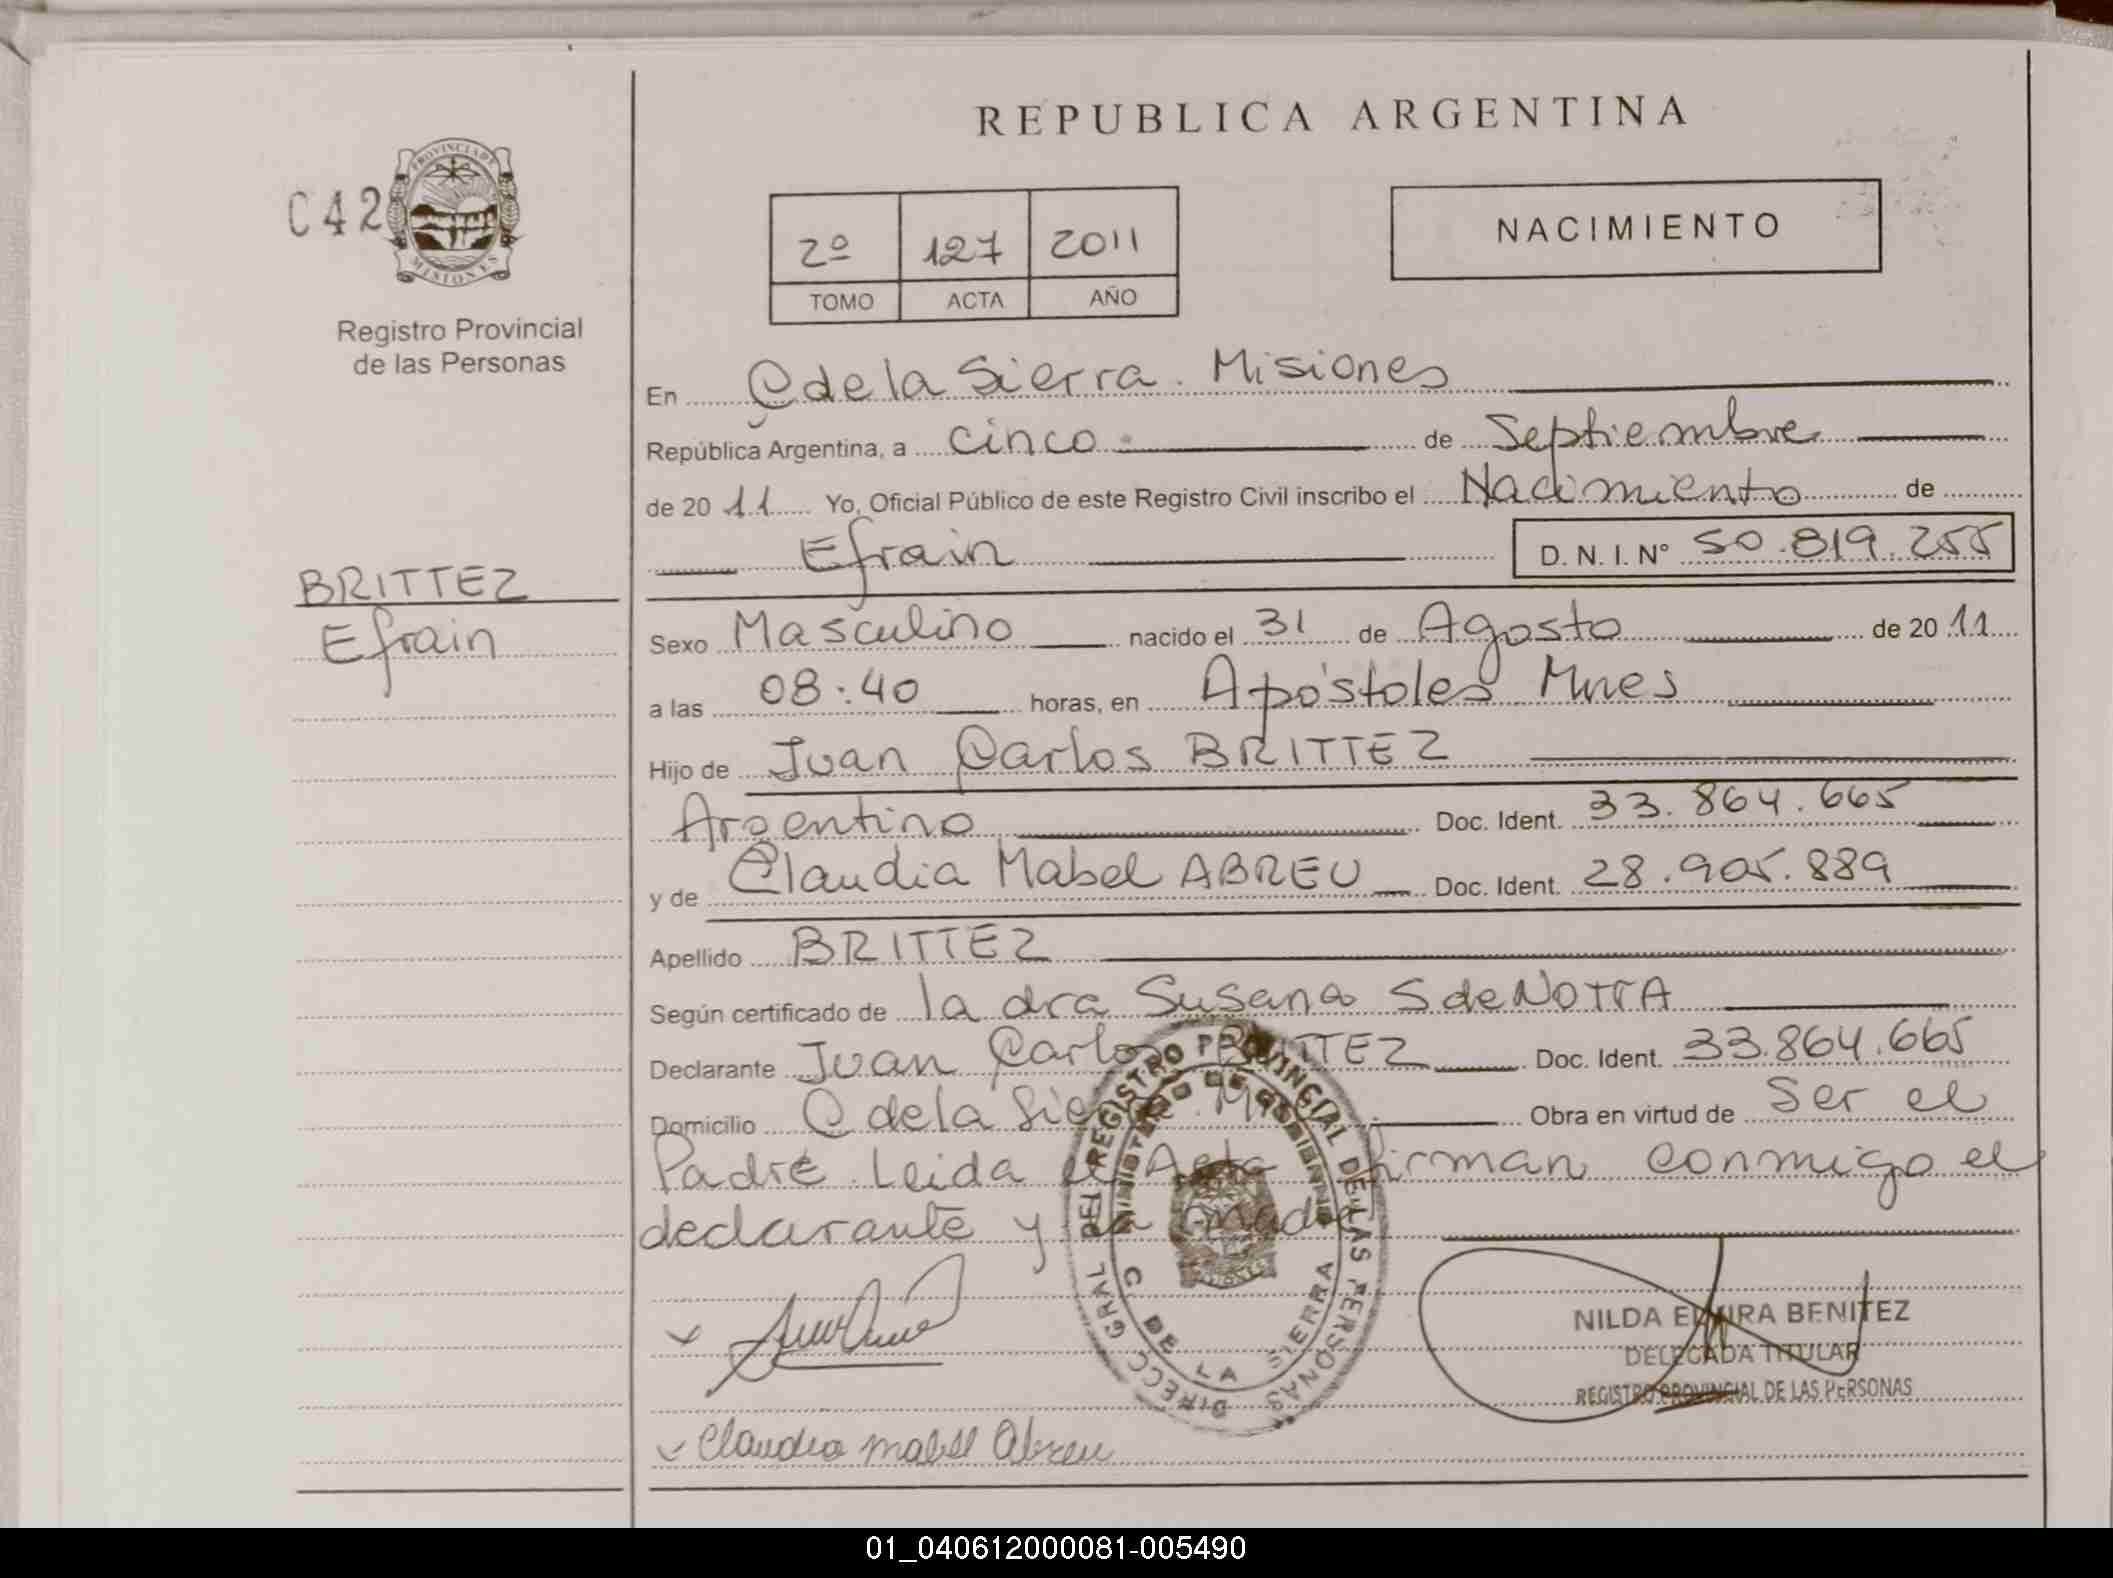 REPUBLICA ARGENTINA
C42
PROVINCIA DE
MISIONES
Registro Provincial
de las Personas
2º 127 2011
TOMO ACTA AÑO
NACIMIENTO
En C de la Sierra. Misiones
República Argentina, a cinco de Septiembre
de 2011 Yo, Oficial Público de este Registro Civil inscribo el Nacimiento de
Efrain D. N. I. Nº 50.819.255
BRITTEZ
Efrain
Sexo Masculino nacido el 31 de Agosto de 2011
a las 08:40 horas, en Apóstoles Mnes
Hijo de Juan Carlos BRITTEZ
Argentino Doc. Ident. 33.864.665
y de Claudia Mabel ABREU Doc. Ident. 28.905.889
Apellido BRITTEZ
Según certificado de la dra Susana S de NOTTA
Declarante Juan Carlos BRITTEZ Doc. Ident. 33.864.665
Domicilio C de la Sierra. Obra en virtud de Ser el
Padre. Leida el Acta firman conmigo el
declarante y la madre
DIRECC GRAL DEL REGISTRO PROVINCIAL DE LAS PERSONAS
MINISTERIO DE GOBIERNO
C DE LA SIERRA
NILDA ELVIRA BENITEZ
DELEGADA TITULAR
REGISTRO PROVINCIAL DE LAS PERSONAS
Claudia mabel Abreu
01_040612000081-005490